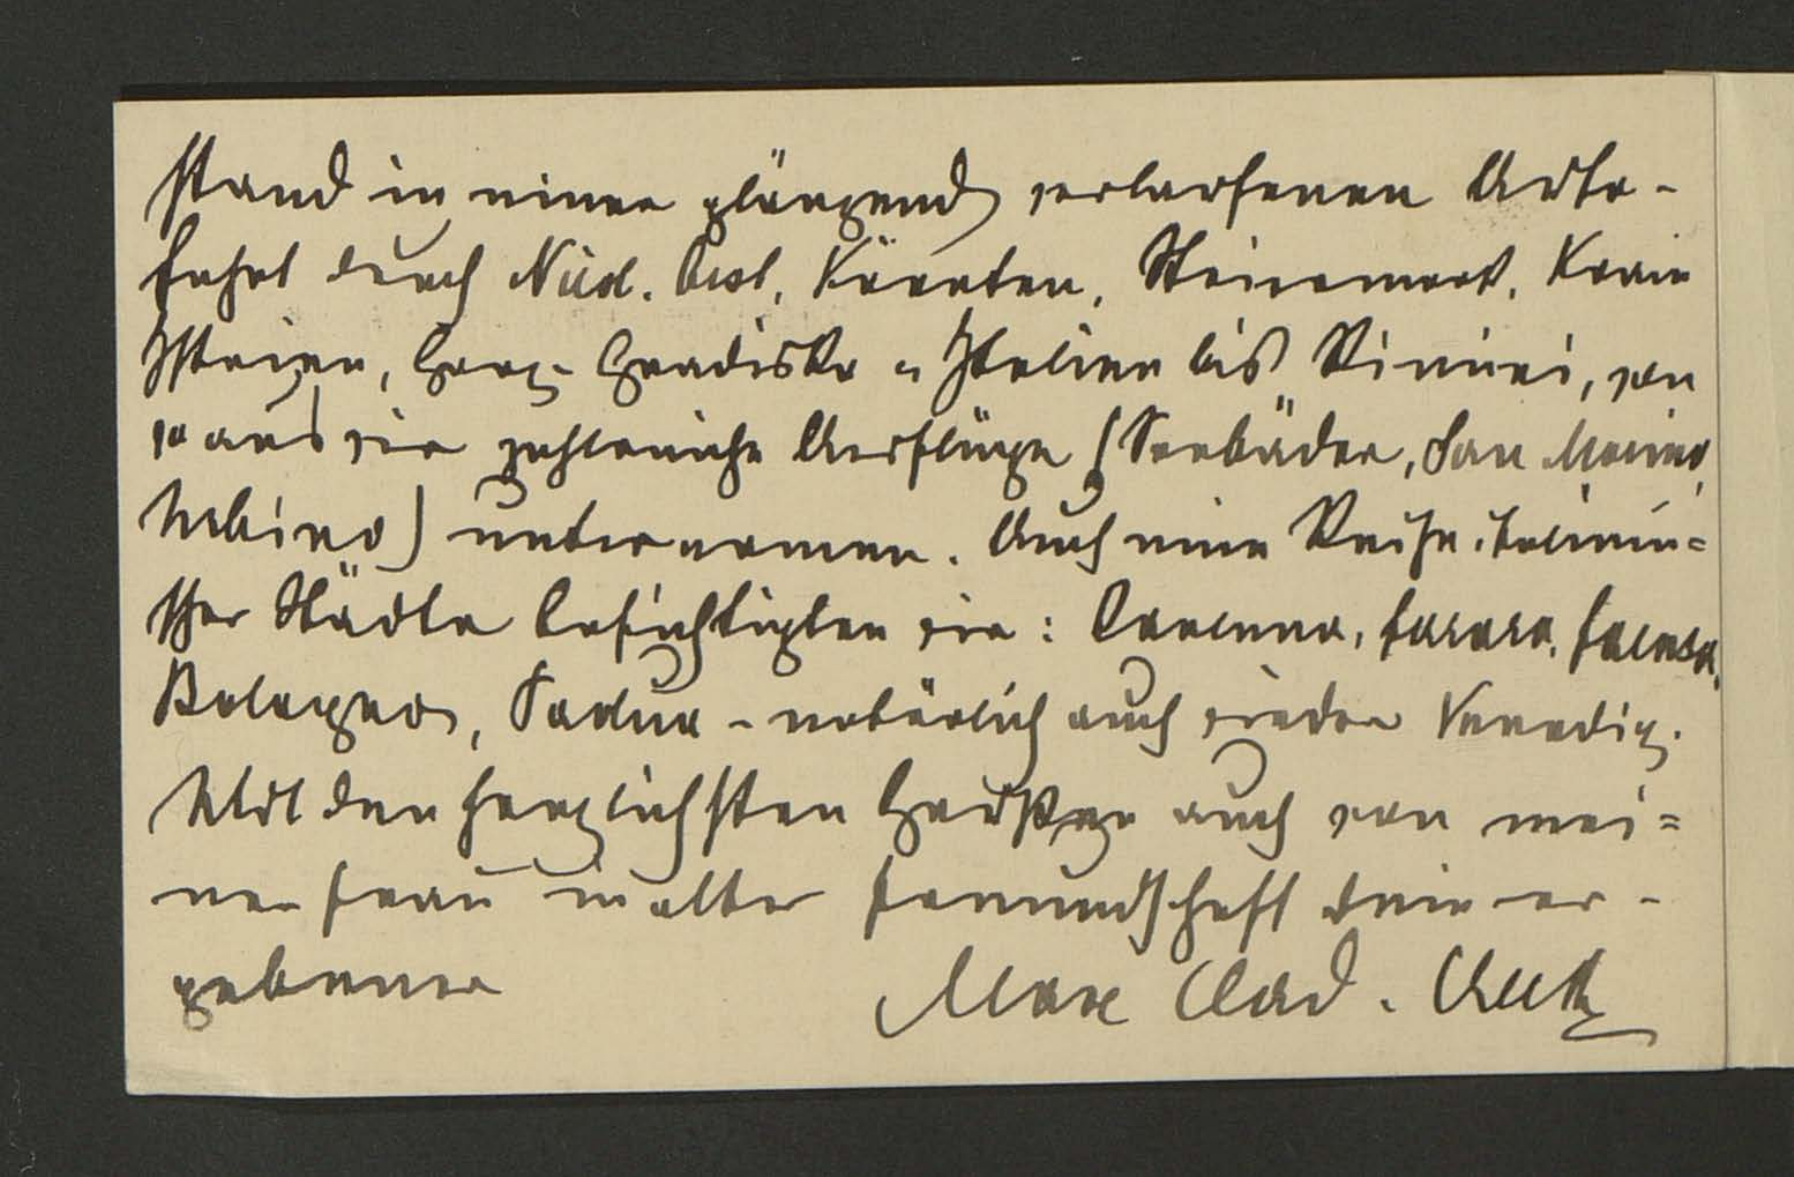 stand in einer glänzend verlaufenen Auto-
fahrt durch Nied. Öst., Kärnten, Steiermark, Krain
Istrien, Görz-Gradiska u Italien bis Rimini, von
wo aus wir zahlreiche Ausflüge (Seebäder, San Marino,
Urbino) unternamen. Auch eine Reihe italieni=
scher Städte besichtigten wir: Ravenna, Ferara, Faenza,
Bologna, Padua - natürlich auch wieder Venedig.
Mit den herzlichsten Grüßen auch von mei=
ner Frau in alter Freundschaft dein er-
gebener
Max